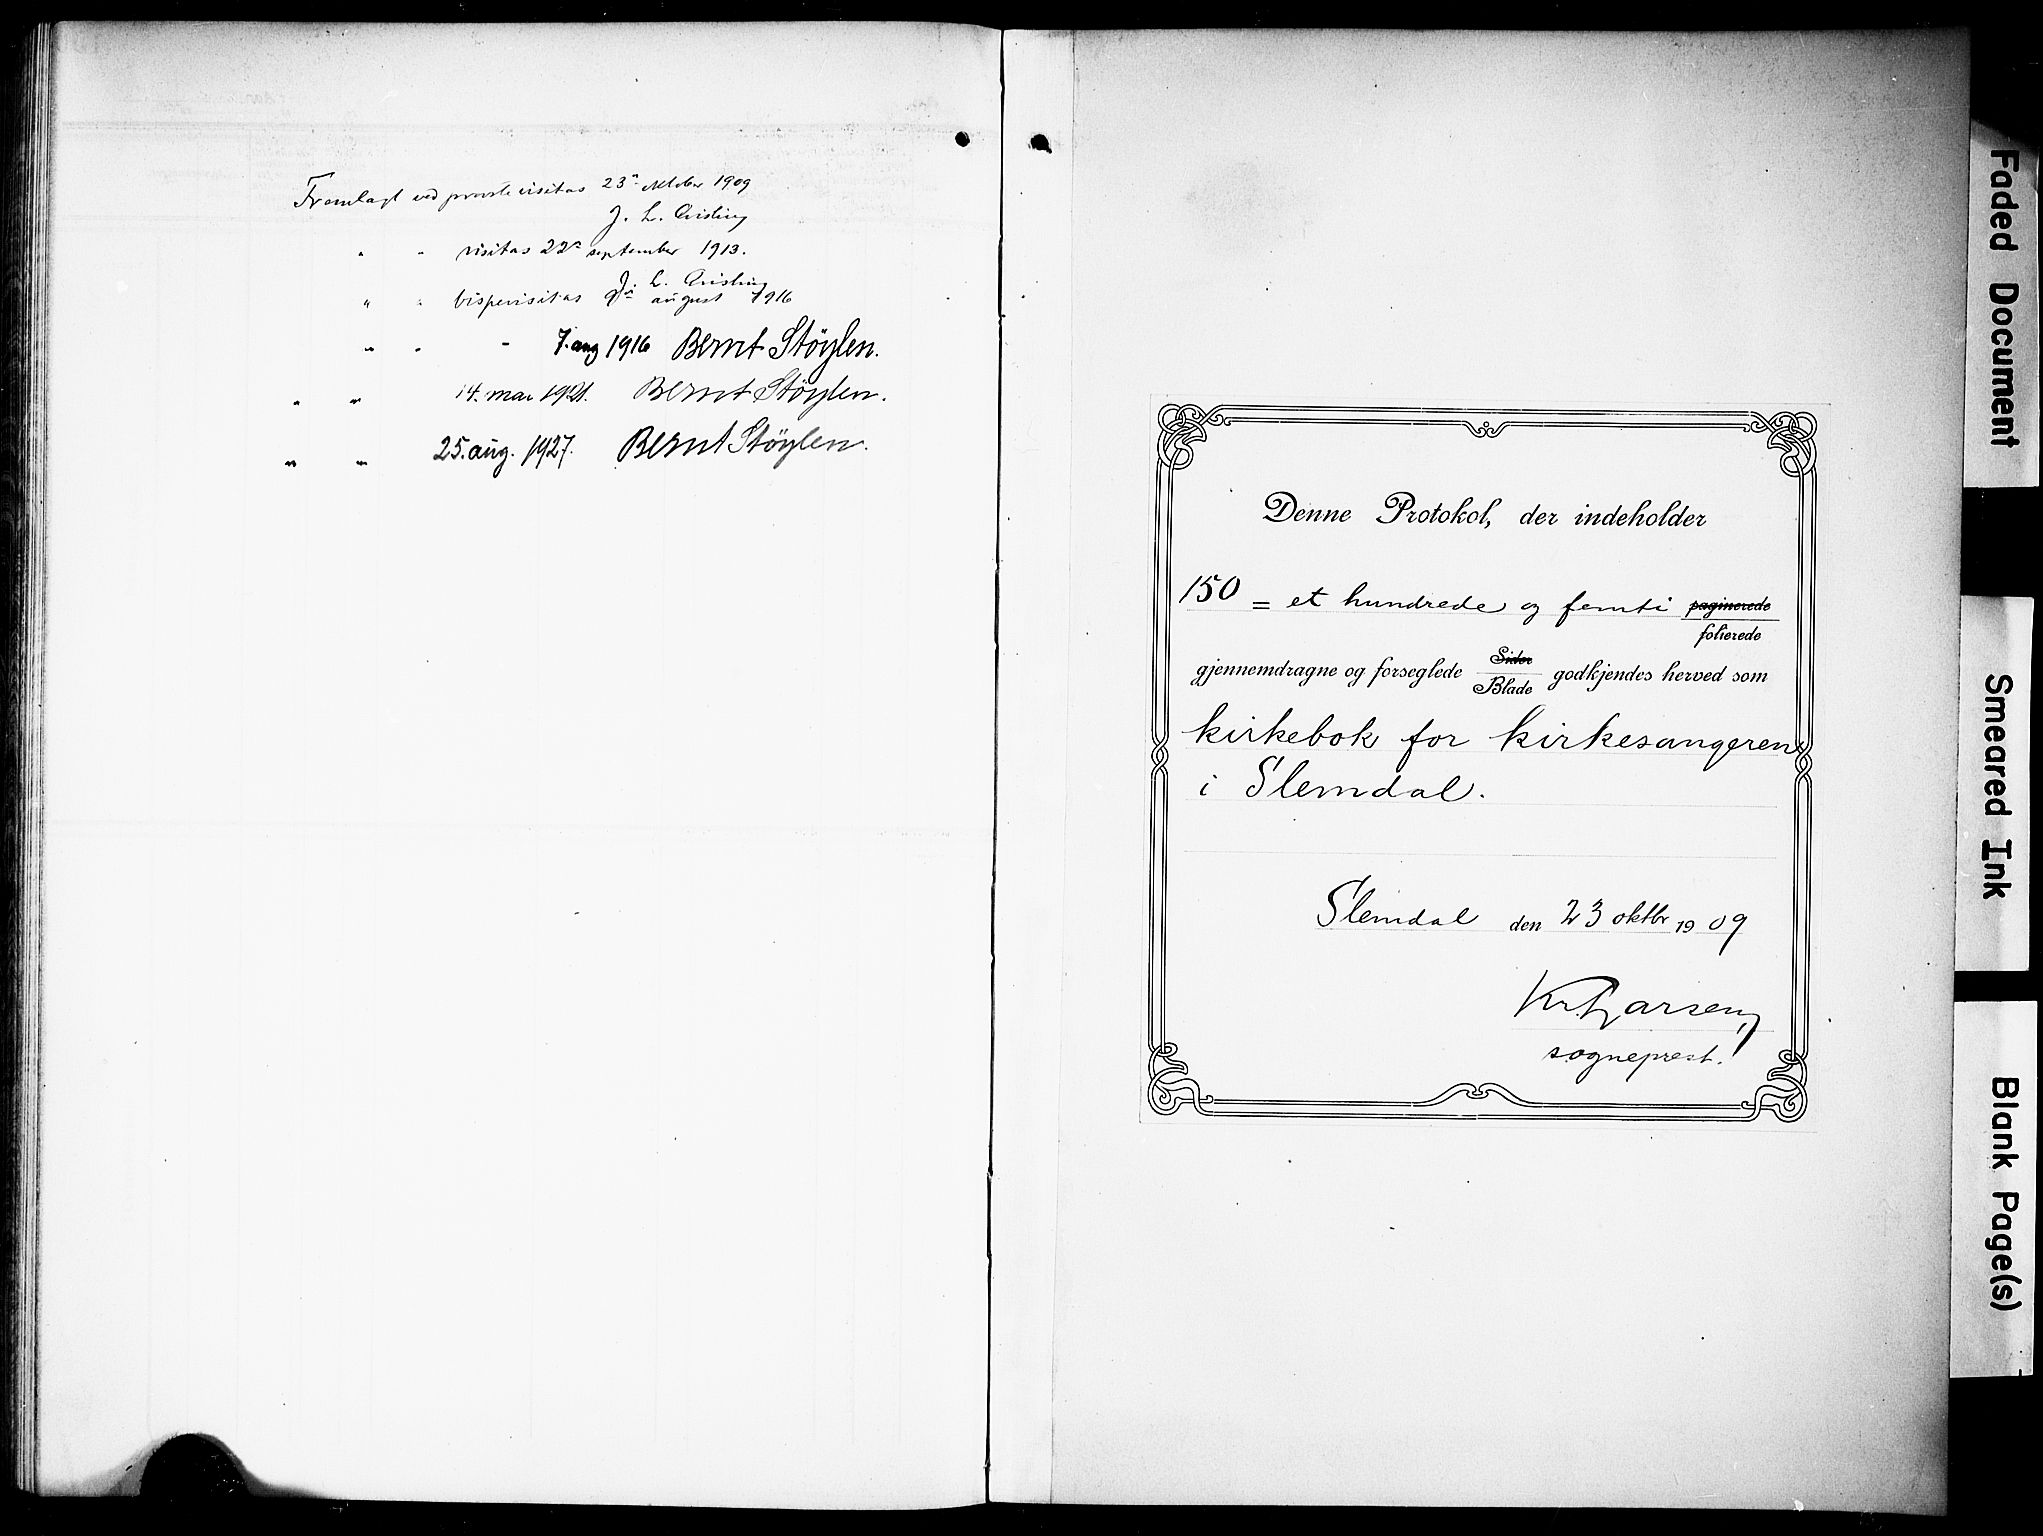 Fremlagt ved provstevisitas 23de oktober 1909
J. L. Qvisling
" " visitas 22de september 1913.
J. L. Qvisling
" " bispevisitas august 1916
" " " 7. aug 1916 Bernt Støylen.
" " 14. mai 1921. Bernt Støylen.
" " 25. aug. 1927. Bernt Støylen.
Denne Protokol, der indeholder
150 = et hundrede og femti paginerede
folierede
gjennemdragne og forseglede Sider godkjendes herved som
Blade
kirkebok for kirkesangeren
i Slemdal.
Slemdal den 23 oktbr 1909
Kr. Larsen,
sogneprest.
Faded Document
Smeared Ink
Blank Page(s)